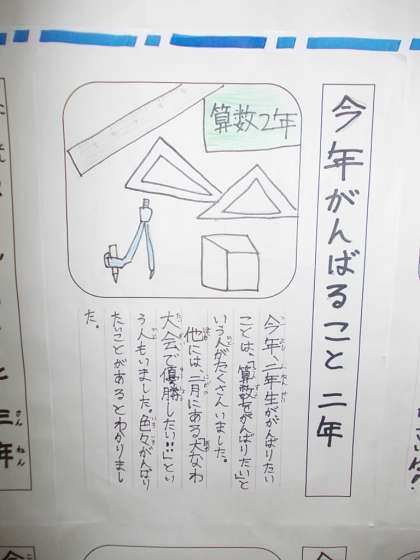 今年がんばること 二年
算数2年
今年、二年生ががんばりたい
ことは、「算数をがんばりたい」と
いう人がたくさんいました。
他には、二月にある「大なわ
大会で優勝したい!!」とい
う人もいました。色々がんばり
たいことがあるとわかりまし
た。
と 三年